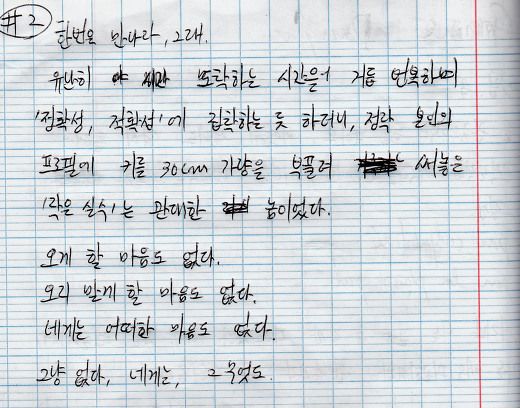 #2
한번은 만나라, 그래.
유난히 도착하는 시간을 거듭 번복하며
'정확성, 적확성'에 집착하는 듯 하더니, 정작 본인의
프로필에 키를 30cm 가량을 부풀려 써놓은
'작은 실수'는 관대한 놈이었다.
오게 할 마음도 없다.
오리 맡게 할 마음도 없다.
네게는 어떠한 마음도 없다.
그냥 없다, 네게는, 그 무엇도.